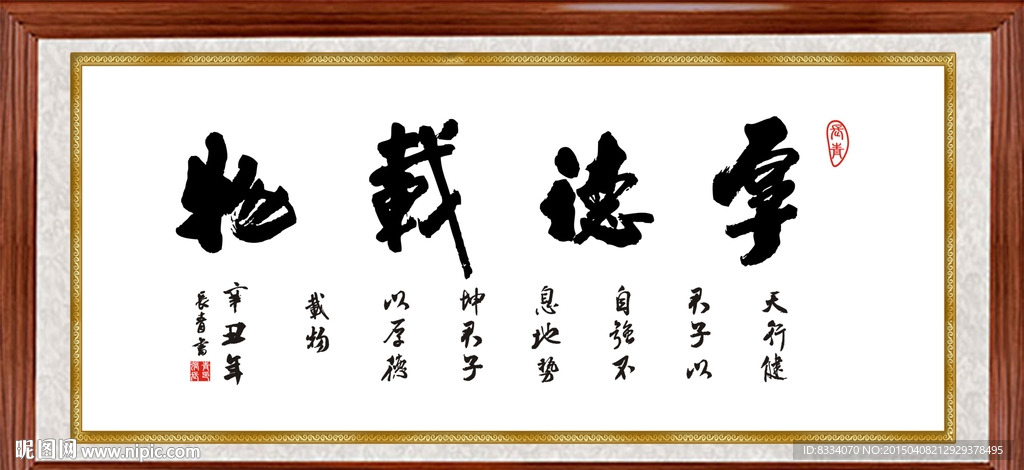 厚德載物
長青
天行健
君子以
自強不
息地势
坤君子
以厚德
載物
辛丑年
長青書
昵图网 www.nipic.com
ID:8334070 NO:20150408212929378495